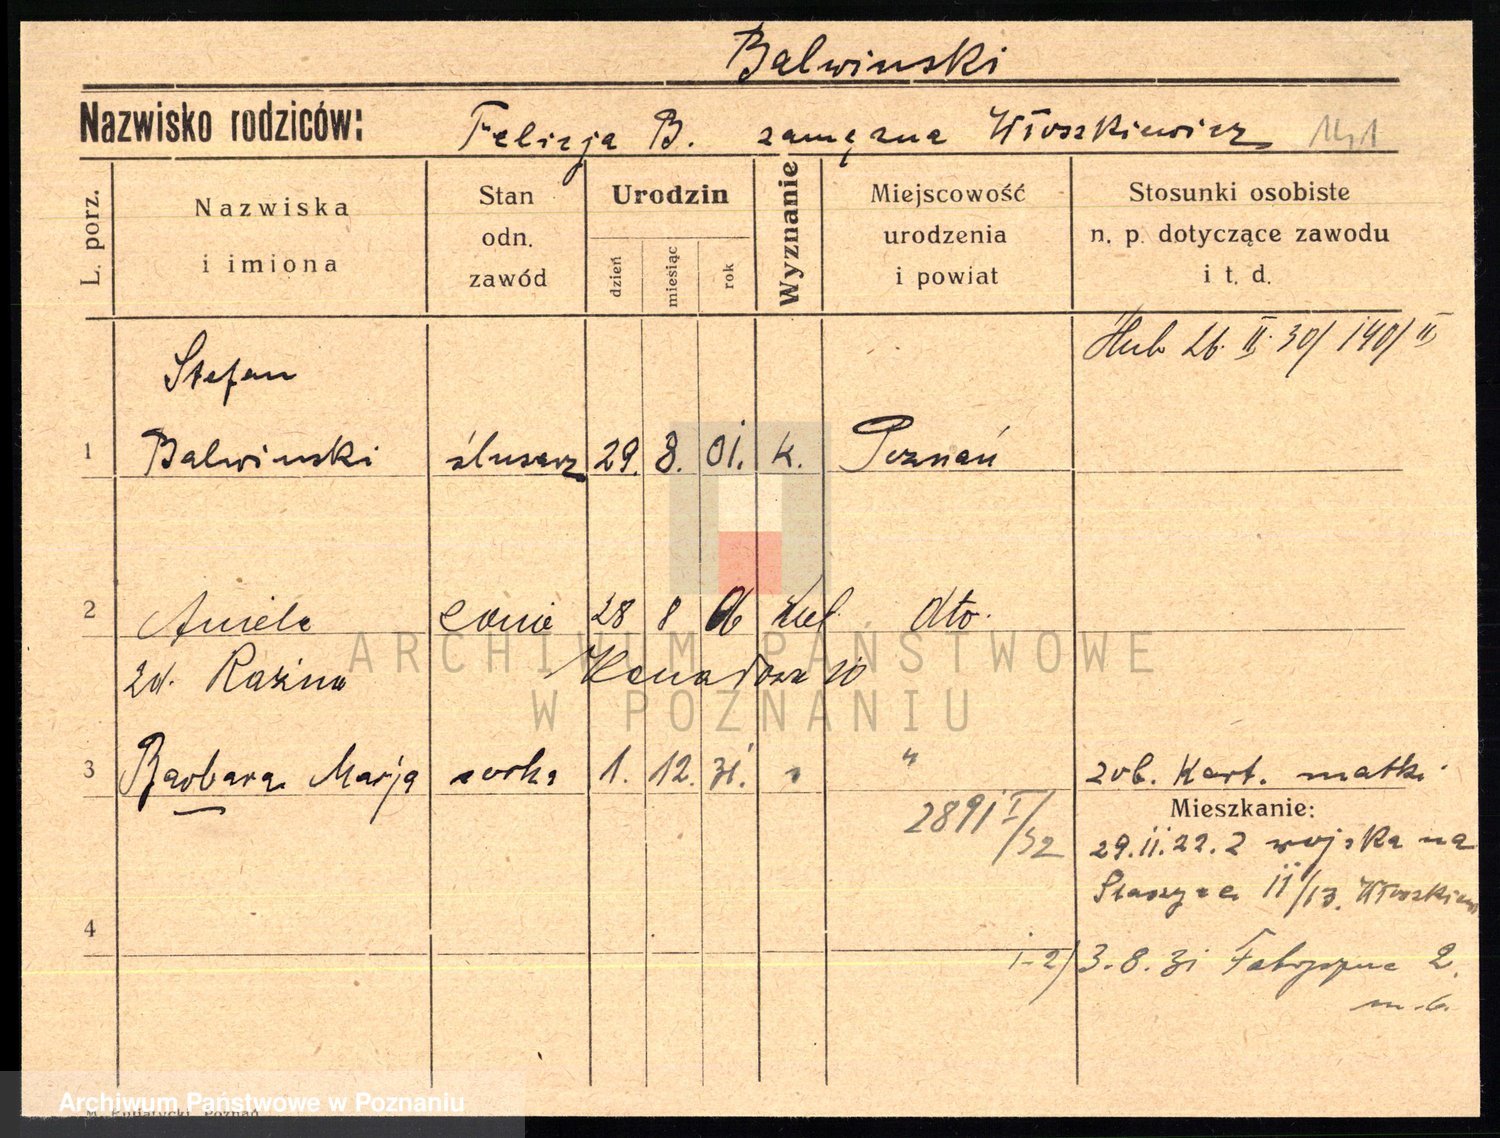 Balwinski
Nazwisko rodziców: Felicja B. zamężna Włoszkiewicz
L. porz.
Nazwiska i imiona
Stan odn. zawód
Urodzin
dzień
miesiąc
rok
Wyznanie
Miejscowość urodzenia i powiat
Stosunki osobiste n. p. dotyczące zawodu i t. d.
26. II. 30/ 140/II
Stefan
1 Balwinski ślusarz 29. 8. 01. k. Poznań
2 Aniela 28 8 06 dto.
zd. Kaźm
3 Barbara Marja córka 1. 12. 31. " " zob. Kart. matki
2891 I/32
Mieszkanie:
29.11.22. z wojska na
Staszyca 11/13. Włoszkiew
4
1-2/ 3.8.31 Fabryczna 2.
m. 6.
ARCHIWUM PAŃSTWOWE
W POZNANIU
Archiwum Państwowe w Poznaniu